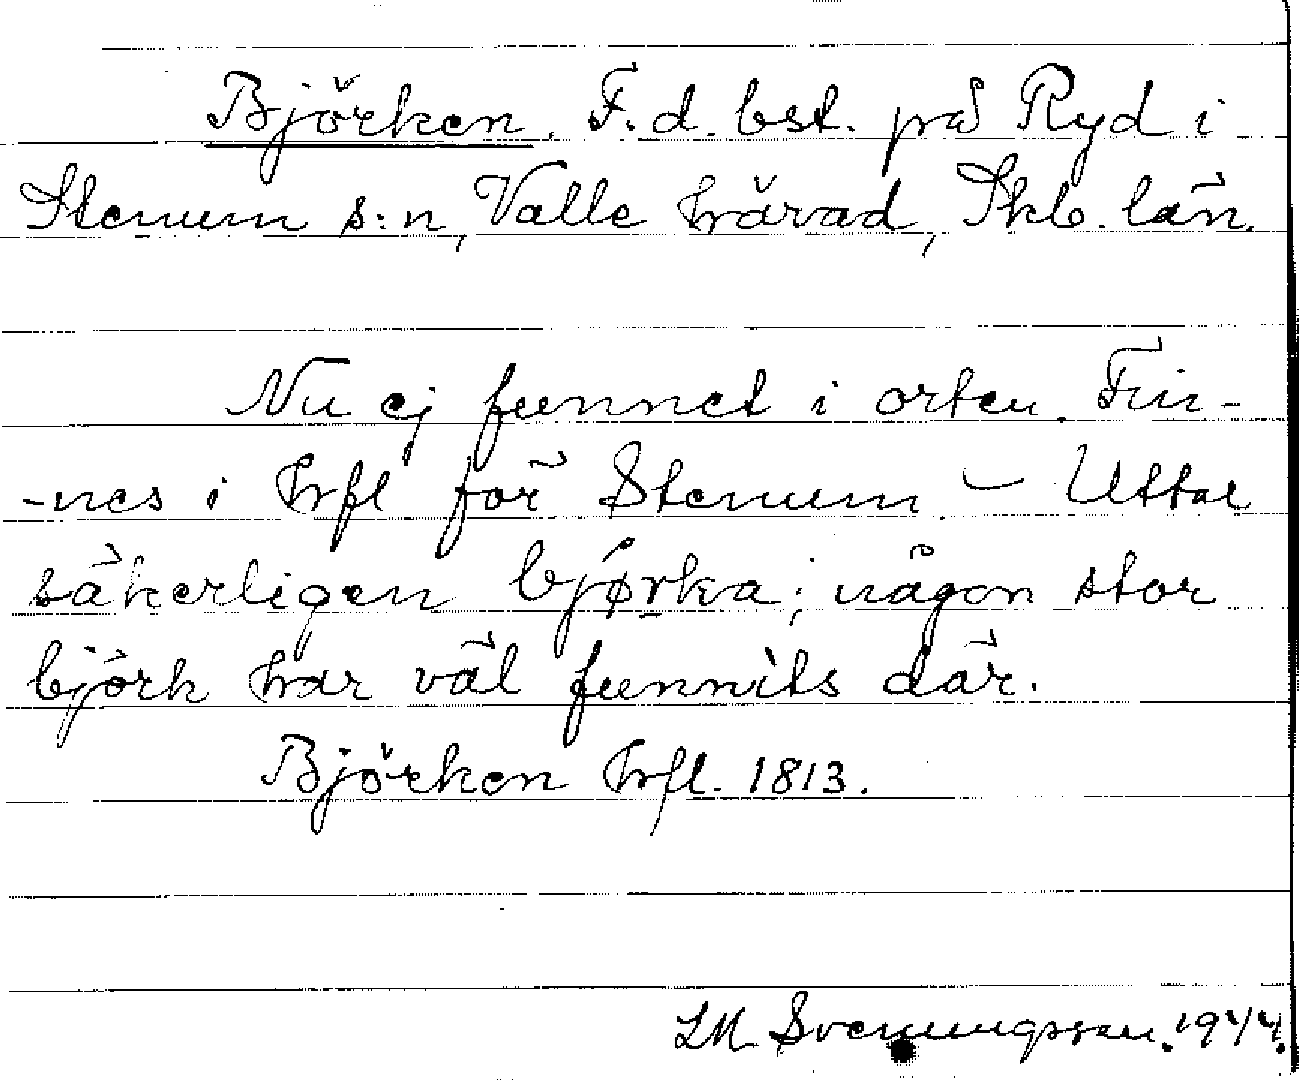 Björken. F.d. bst. på Ryd i
Stenum s:n, Valle härad, Skb. län.
Nu ej funnet i orten. Fin-
-nes i hfl för Stenum – Uttal
säkerligen bjørka; någon stor
björk har väl funnits där.
Björken hfl. 1813.
LM Svenungsson. 1944.